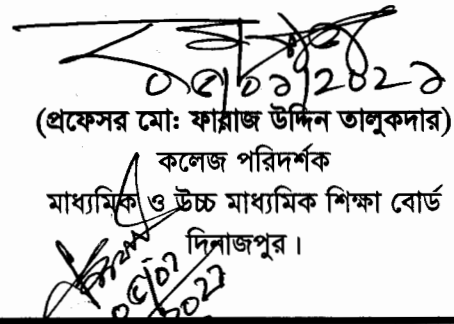 ০৫/০১/২০২১
(প্রফেসর মো: ফারাজ উদ্দিন তালুকদার)
কলেজ পরিদর্শক
মাধ্যমিক ও উচ্চ মাধ্যমিক শিক্ষা বোর্ড
দিনাজপুর।